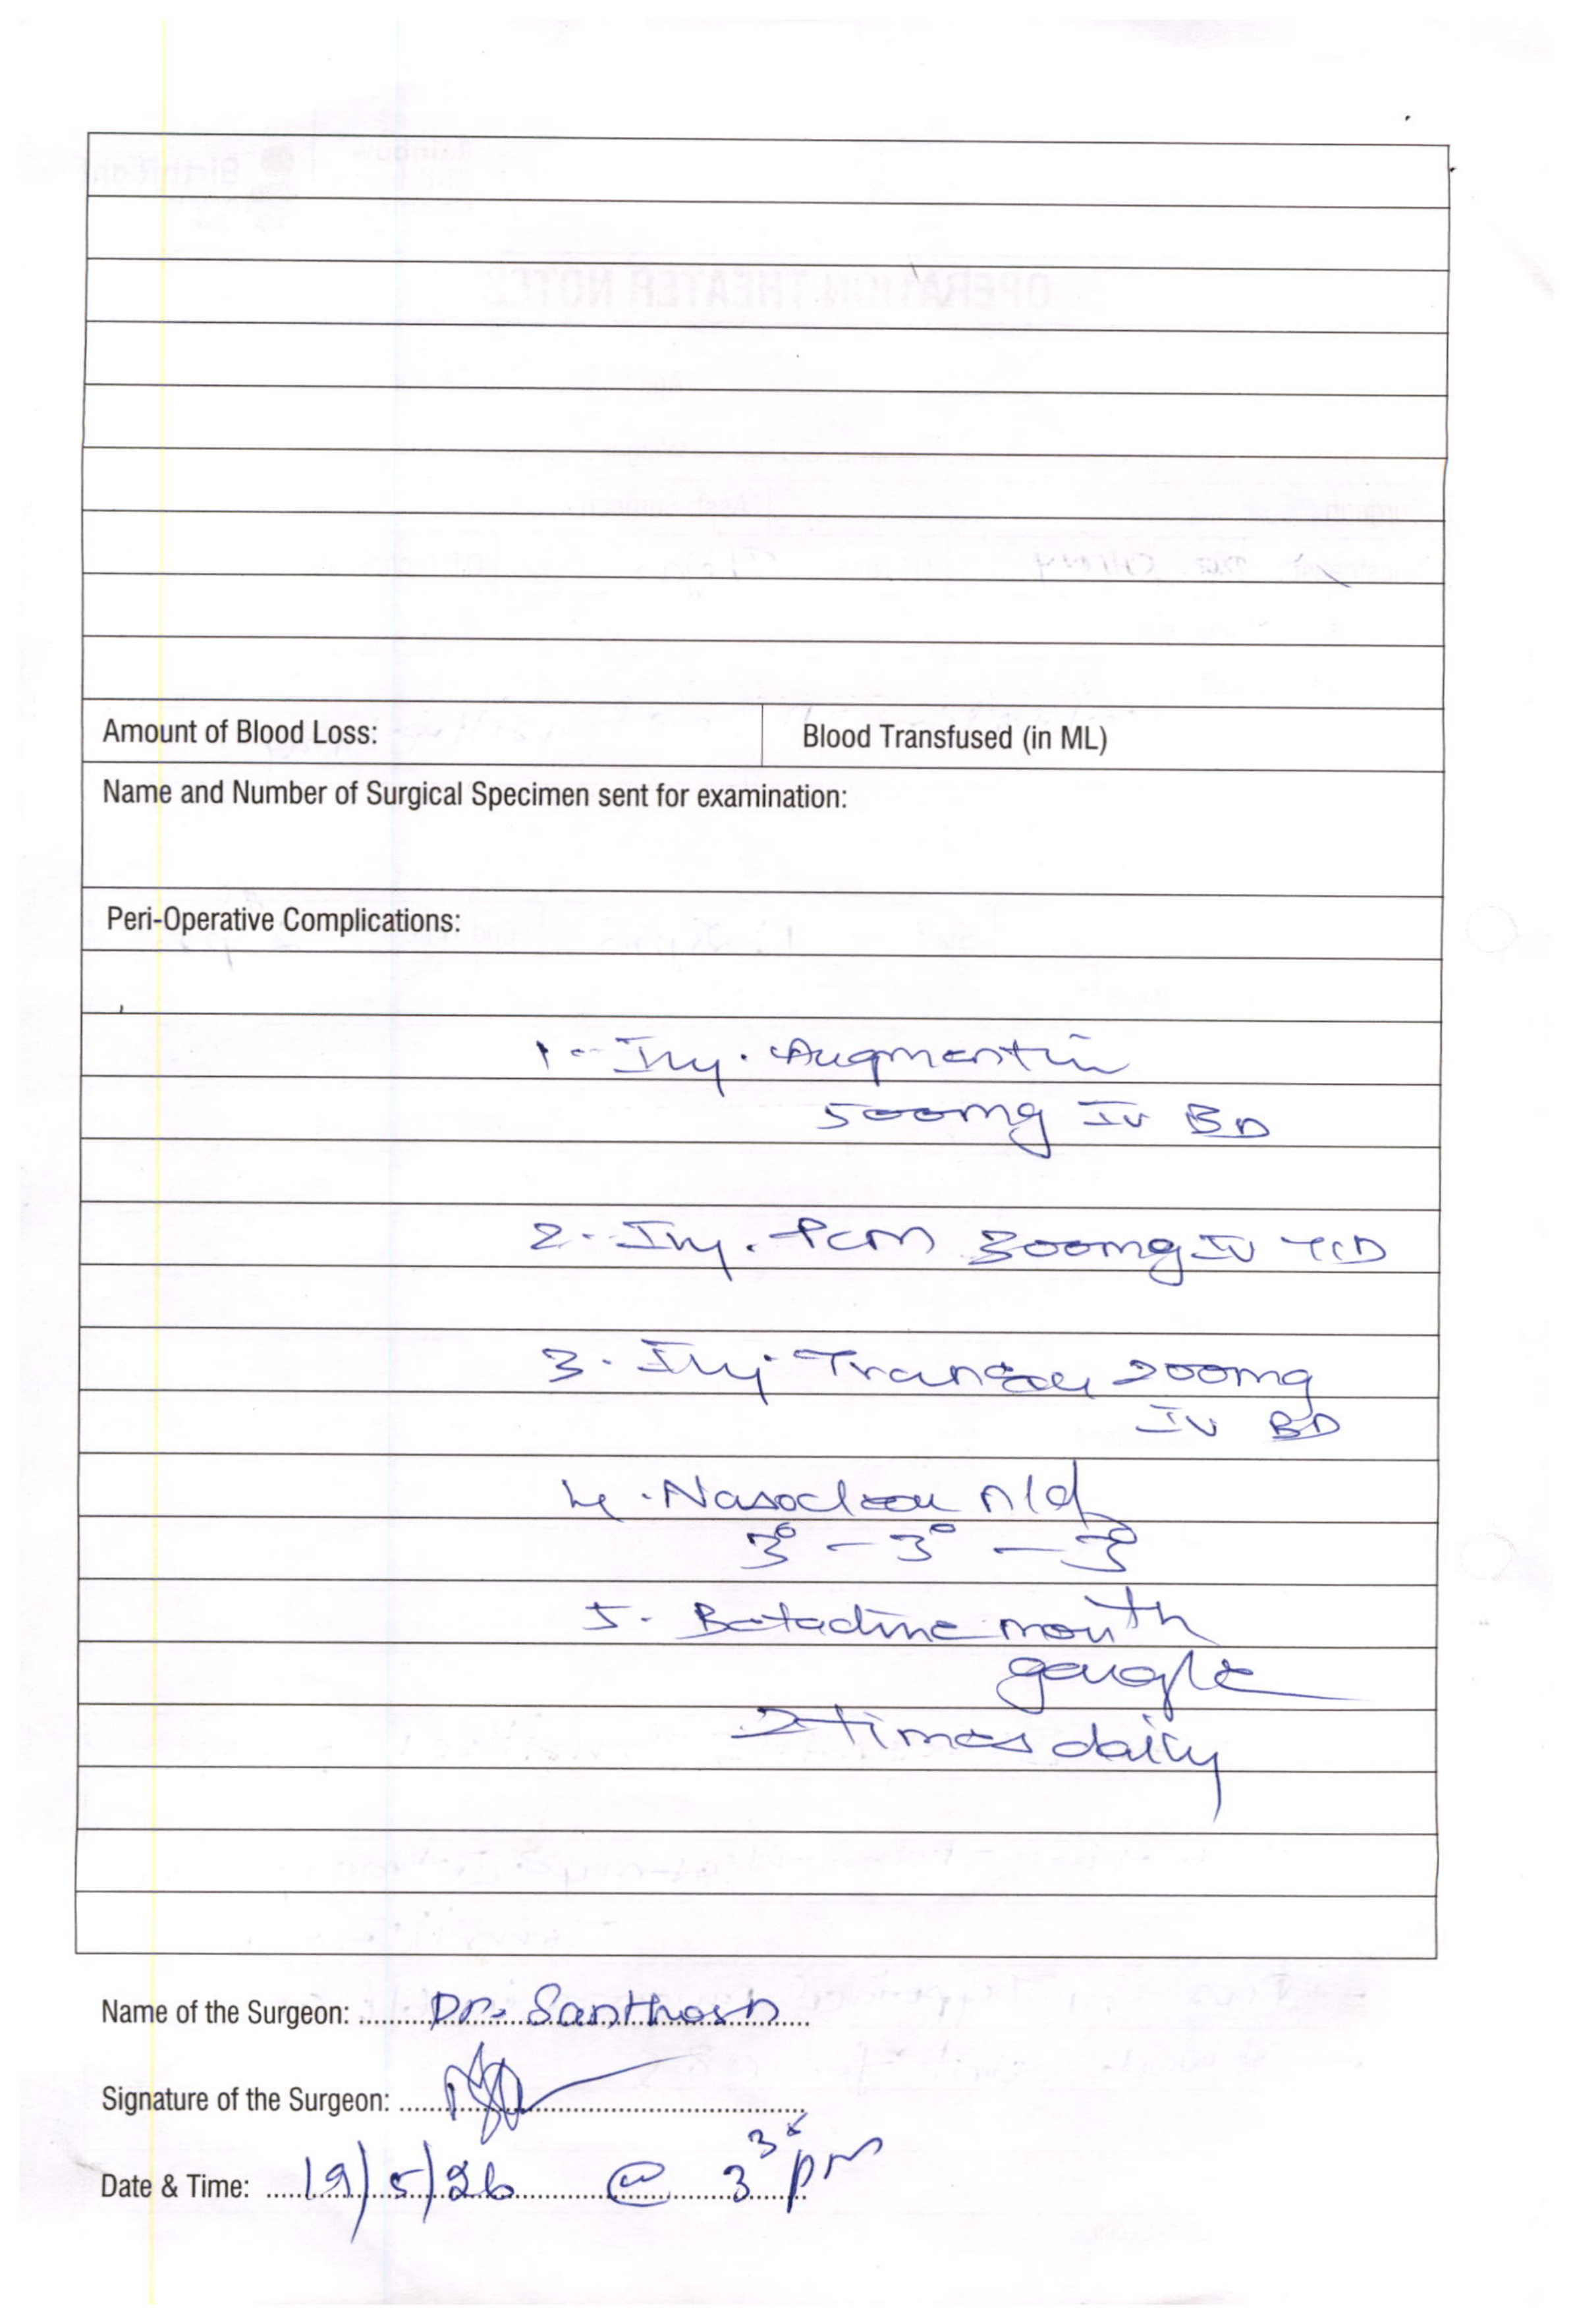 Amount of Blood Loss: Blood Transfused (in ML)
Name and Number of Surgical Specimen sent for examination:
Peri-Operative Complications:
1. Inj. Augmentin
500mg IV BD
2. Inj. PCM 300mg IV TID
3. Inj. 200mg
IV BD
4. Nasoclear n/d
3° - 3° - 3°
5. Betadine mouth
gargle
2 times daily
Name of the Surgeon: Dr. Santhosh
Signature of the Surgeon:
Date & Time: 19/5/26 @ 3 pm